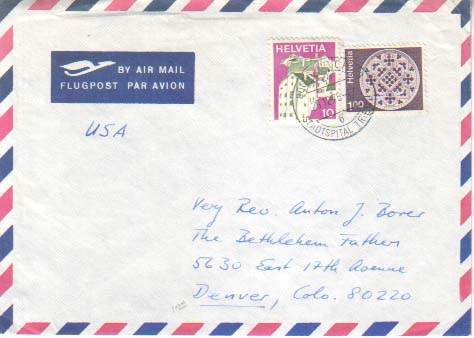 BY AIR MAIL
FLUGPOST PAR AVION
HELVETIA
10
Helvetia
100
STADTSPITAL
USA
Very Rev. Anton J. Borer
The Bethlehem Fathers
5630 East 17th Avenue
Denver, Colo. 80220